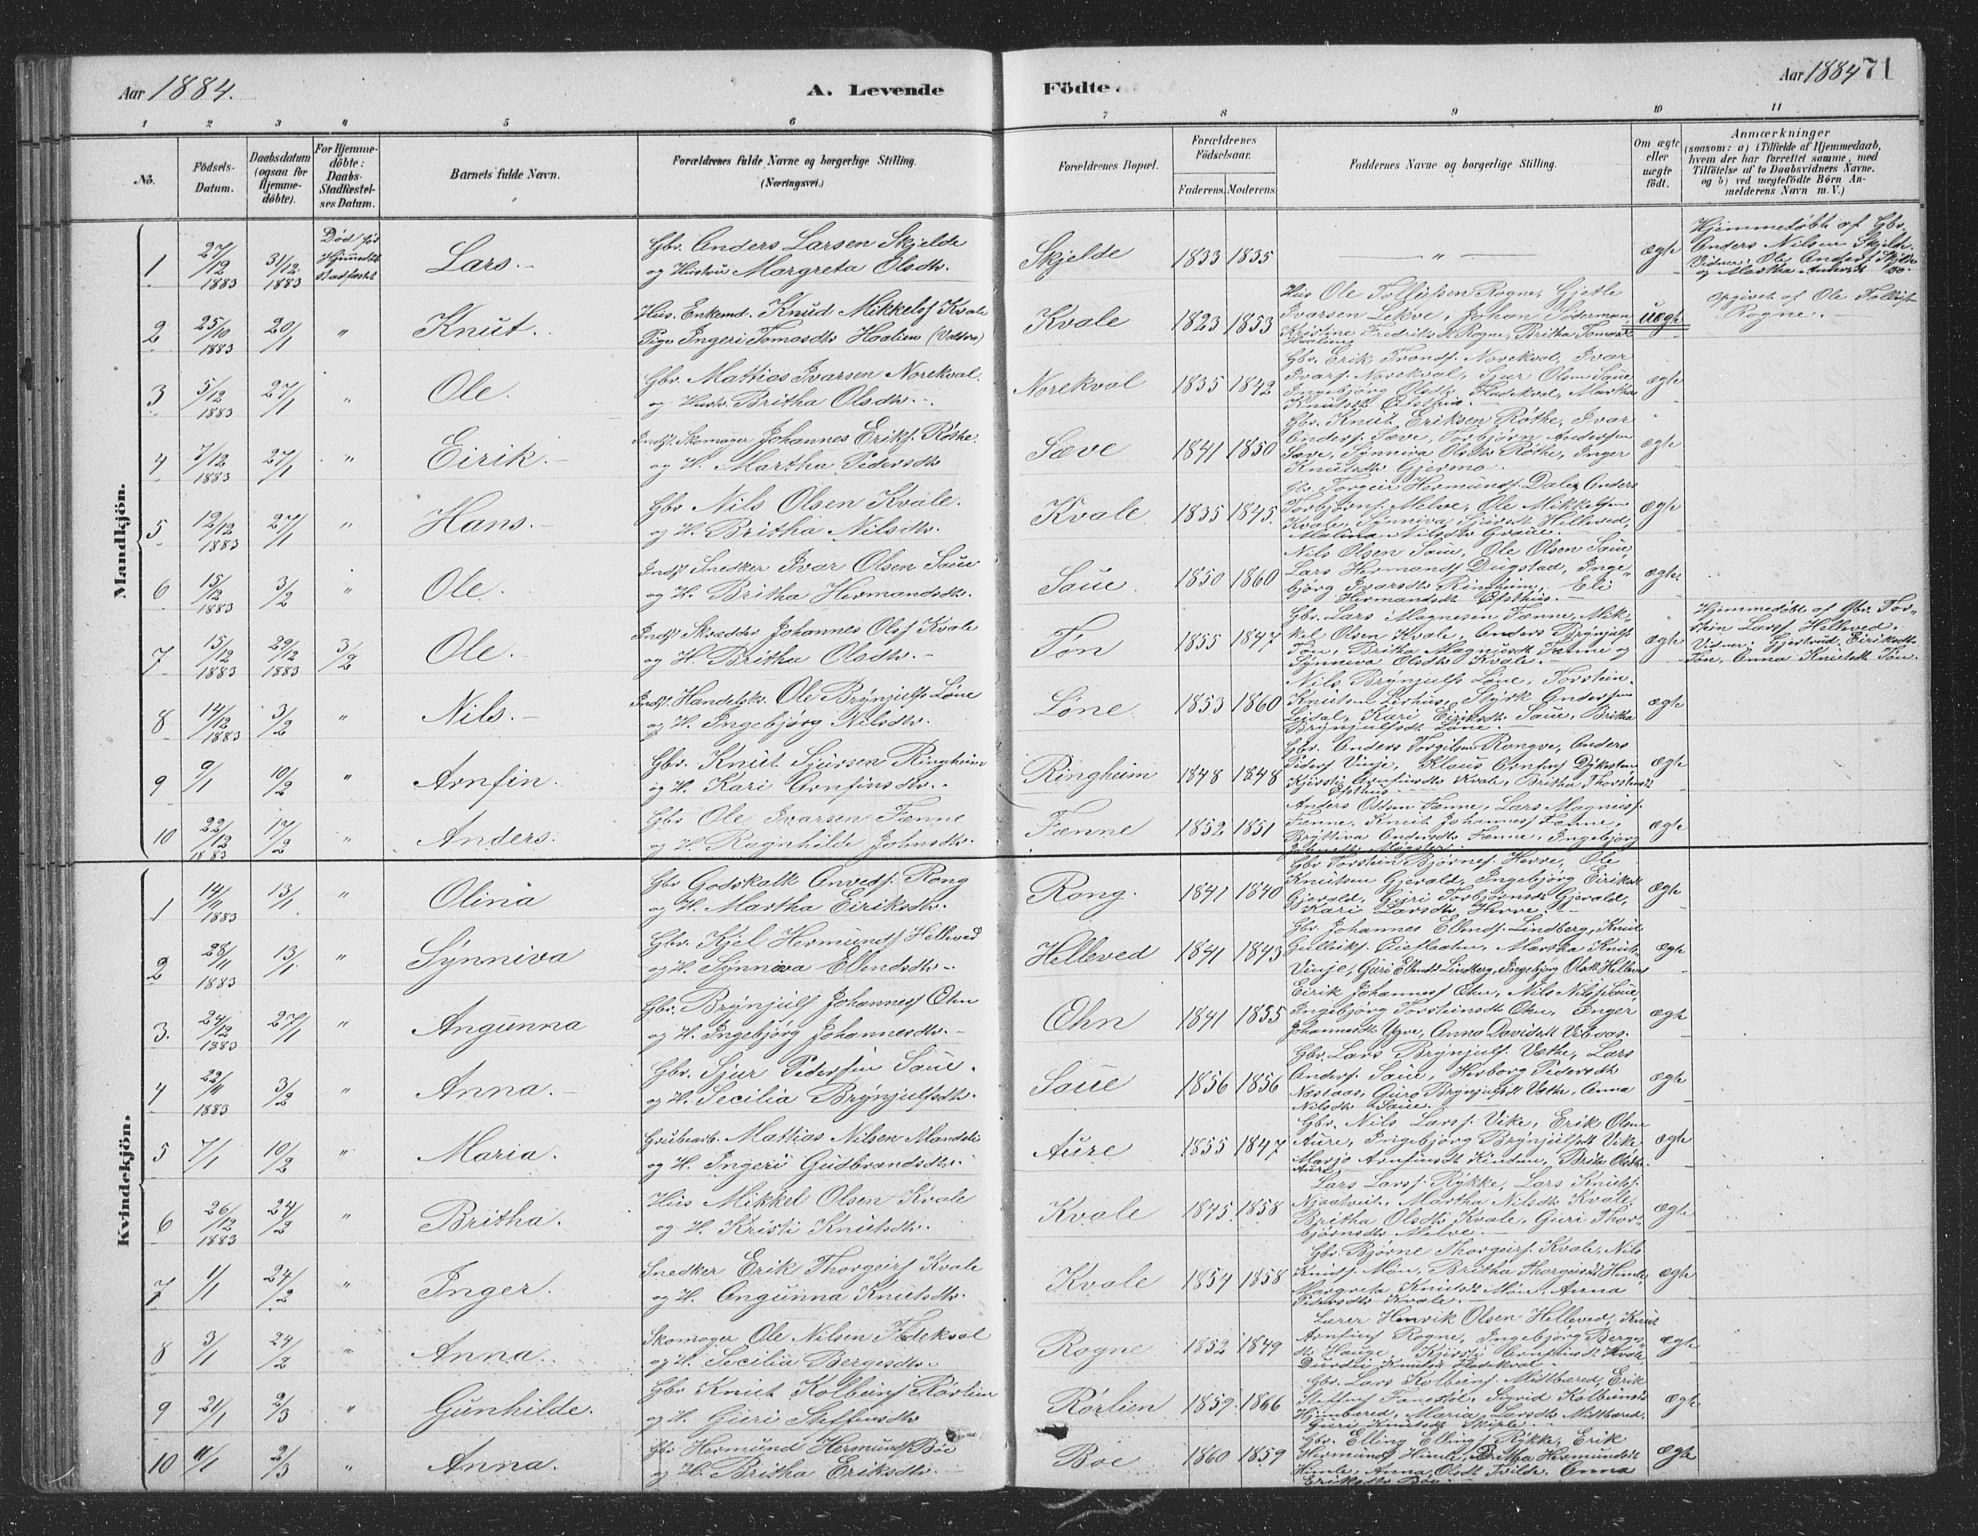 Aar 1884.
A. Levende
Födte.
Aar 1884 71
1 2 3 4 5 6 7 8 9 10 11
No.
Födsels-
Datum.
Daabsdatum
(ogsaa for
Hjemme-
döbte).
For Hjemme-
döbte:
Daabs-
Stadfæstel-
ses Datum.
Barnets fulde Navn.
Forældrenes fulde Navne og borgerlige Stilling.
(Næringsvei.)
Forældrenes Bopæl.
Forældrenes
Födselsaar.
Faderens. Moderens.
Faddernes Navne og borgerlige Stilling.
Om ægte
eller
uægte
födt.
Anmærkninger
(saasom: a) i Tilfælde af Hjemmedaab,
hvem der har forrettet samme, med
Tilföielse af to Daabsvidners Navne.
og b) ved uægtefödte Börn An-
melderens Navn m. V.)
Mandkjön.
1 27/12 1883 31/12 1883 Død før Hjemmedaab Stadfæstet Lars.
Gbr. Anders Larsen Skjelde
og Hustru Margreta Olsdtr.
Skjelde 1833 1835 — " — ægte
Hjemmedøbt af Gbr.
Anders Nilsen Skjelde.
2 25/10 1883 20/1 " Knut.
Hus. Enkemd. Knud Mikkelsf Kvale
Pige Ingeri Tomasdtr Haalien (Valdres)
Kvale 1823 1853
Hus Ole Tollefssen Rogne, Gjertle
Ivarsen Lekve, Johan Söderman,
Kristine Fredriks d. Rogne, Britha Tomasd.
Haalien
uægte
Opgivet af Ole Tollefsen
Rogne.
3 5/12 1883 27/1 " Ole.
Gbr. Mattias Ivarsen Norekval.
og Hustr. Britha Olsdtr.
Norekval 1835 1842
Gbr. Erik Trondsf. Norekval, Ivar
Ivarsf. Norekval, Sjur Olsen Saue
Ingebjørg Olsdtr Fladekval, Martha
Knutsdtr
ægte
4 7/12 1883 27/1 " Eirik.
Inds. Skomager Johannes Eriksf. Røthe.
og H. Martha Pedersdtr
Sæve 1841 1850
Gbr. Knut Eriksen Röthe, Ivar
Andersf. Sæve, Torbjörn Andersen
Sæve, Synniva Olsdtr Röthe, Inger
Knutsdtr Gjermo.
ægte
5 12/12 1883 27/1 " Hans.
Gbr. Nils Olsen Kvale.
og H. Britha Nilsdtr.
Kvale. 1835 1845.
Gbr. Torgeir Hermundsf. Dale, Anders
Torbjørnsf. Melve, Ole Mikkelsen
Kvale, Synniva Sjursdtr Helleved,
Malina Nilsdtr Graue.
ægte
6 15/12 1883 3/2 " Ole.
Inds. Snedker Ivar Olsen Saue
og H. Britha Hermandsdtr.
Saue 1850 1860
Nils Olsen Saue, Ole Olsen Saue,
Lars Hermandsf Dugstad, Inge-
björg Ivarsdtr Ringheim, Eli
Hermandsdtr
ægte
7 15/12 1883 29/12 1883 3/2 Ole.
Inds. Skrædder Johannes Olsf Kvale
og H. Britha Olsdtr.
Tøn 1855 1847
Gbr. Lars Magnesen Fænne, Mik-
kel Olsen Kvale, Anders Brynjulfs.
Tøn, Britha Magnusdtr Fænne og
Synneva Olsdtr Kvale.
ægte
Hjemmedøbt af Gbr. Tor-
stein Larsf Helleved.
Vidner: Gjertrud Eiriksdtr
Tøn, Anna Knutsdtr Tøn.
8 14/12 1883 3/2 " Nils.
Inds. Handelsk. Ole Brynjulfs Løne
og H. Ingebjørg Nilsdtr.
Løne 1853 1860
Nils Brynjulfs Løne, Torstein
Knutsen Lirhus, Styrk Andersen
Leidal, Kari Eiriksdtr Saue, Britha
Brynjulfsdtr Løne
ægte
9 9/1 10/2 " Arnfin.
Gbr. Knut Sjursen Ringheim
og H. Kari Arnfinsdtr.
Ringheim 1848 1848
Gbr. Anders Torgilsen Rongve, Anders
Pedersf Vinje, Klaus Arnfinsf Dykesten
Kjersti Arnfinsdtr Kvale, Britha Thorsteinsdt
ægte
10 22/12 1883 17/2 " Anders.
Gbr Ole Ivarsen Fænne
og H Ragnhilde Johnsdtr.
Fænne 1852 1851
Anders Olsen Fænne, Lars Magnusf.
Fænne, Knut Johannesf Fænne,
Brittiva Andersdtr Fænne, Ingebjørg
ægte
Kvindekjön.
1 14/11 1883 13/1 " Olina
Gbr Godskalk Anvedsf. Rong
og H. Martha Eiriksdtr.
Rong. 1841 1840
Gbr Torstein Bjørnesf. Herre, Ole
Knutsen Gjerald, Ingebjørg Eiriksd
Gjerald, Guri Torbjørnsdt Gjerald,
Kari Larsdtr Herre.
ægte
2 28/11 1883 13/1 " Synniva
Gbr. Kjel Hermundsf Helleved
og H. Synniva Ellendsdtr.
Helleved 1841 1843
Gbr. Johannes Ellendsf. Lindberg, Knud
Gulleiksf. Martha Knutsd.
Vinje, Guri Ellendsd Lindberg, Ingebjørg Olsdt Helleved
ægte
3. 24/12 1883 27/1 " Angunna
Gbr. Brynjulf Johannesf Ohn
og H. Ingebjørg Johannesdtr.
Ohn 1841 1855
Eirik Johannesf Ohn, Nils Nilsf Saue,
Ingebjørg Torsteinsdt Ohn, Inger
Johannesdt Ygre, Anna Davidsdt
ægte
4 22/11 1883 3/2 " Anna.
Gbr. Sjur Pedersen Saue.
og H. Secilia Brynjulfsdtr.
Saue 1856 1856
Gbr. Lars Brynjulfsf. Væthe, Lars
Andersf. Saue, Herborg Pedersdtr
Næstaas, Guro Brynjulfsdt Væthe, Anna
Nilsdtr Saue.
ægte
5 7/1 10/2 " Maria.
Grubearb. Mattias Nilsen Mandseli
og H. Ingeri Gudbrandsdtr.
Aure 1855 1847
Gbr. Nils Larsf. Vike, Erik Olsen
Aure, Ingebjørg Brynjulfsdt Vike
Marjo Arnfinsdtr Kinden, Brita Olsdtr
Aure
ægte
6 26/12 1883 24/2 " Britha.
Hus Mikkel Olsen Kvale
og H. Kristi Knutsdtr.
Kvale 1845. 1858
Lars Larsf. Rykke, Lars Knutsf.
Njaatveit. Martha Nilsdtr Kvale,
Britha Olsdtr Kvale, Guri Thor-
bjørnsdtr Melve.
ægte
7 1/1 24/2 " Inger.
Snedker Erik Thorgeirsf Kvale
og H. Angunna Knutsdtr.
Kvale 1854 1858
Gbr. Bjørne Thorgeirsf. Kvale, Nils
Knutsf. Møn, Britha Thorgeirsdt Himle
Margreta Knutsdt Møn, Anna
Pedersdtr Kvale
ægte
8 3/1 24/2 " Anna.
Skomager Ole Nilsen Fladekval
og H. Secilia Bergesdtr.
Rogne 1852 1849
Lærer Henrik Olsen Helleved, Knut
Arnfinsf Rogne, Ingebjørg Berges-
dtr Hauge, Kjersti Arnfinsdtr Kvale
Durdei Knutsdt Fladekval
ægte
9 21/1 2/3 " Gunhilde.
Gbr Knut Kolbeinsf Rørlien
og H. Guri Steffensdtr
Rørlien 1859. 1866
Gbr. Lars Kolbeinsf. Midtbæred, Erik
Steffensf Fanestøl, Sigrid Kolbeinsd
Maria Larsdtr Midtbæred,
Guri Knutsdtr
ægte
10 11/1 2/3 " Anna.
Gbr Hermund Hermundsf Bøe
og H. Britha Eriksdtr.
Bøe 1860 1859
Gbr. Elling Ellingsf Rykke, Erik
Hermundsf Himle, Britha Hermundsdt
Himle, Anna Olsdt Tvilde, Anna
Eriksdtr Bøe.
ægte